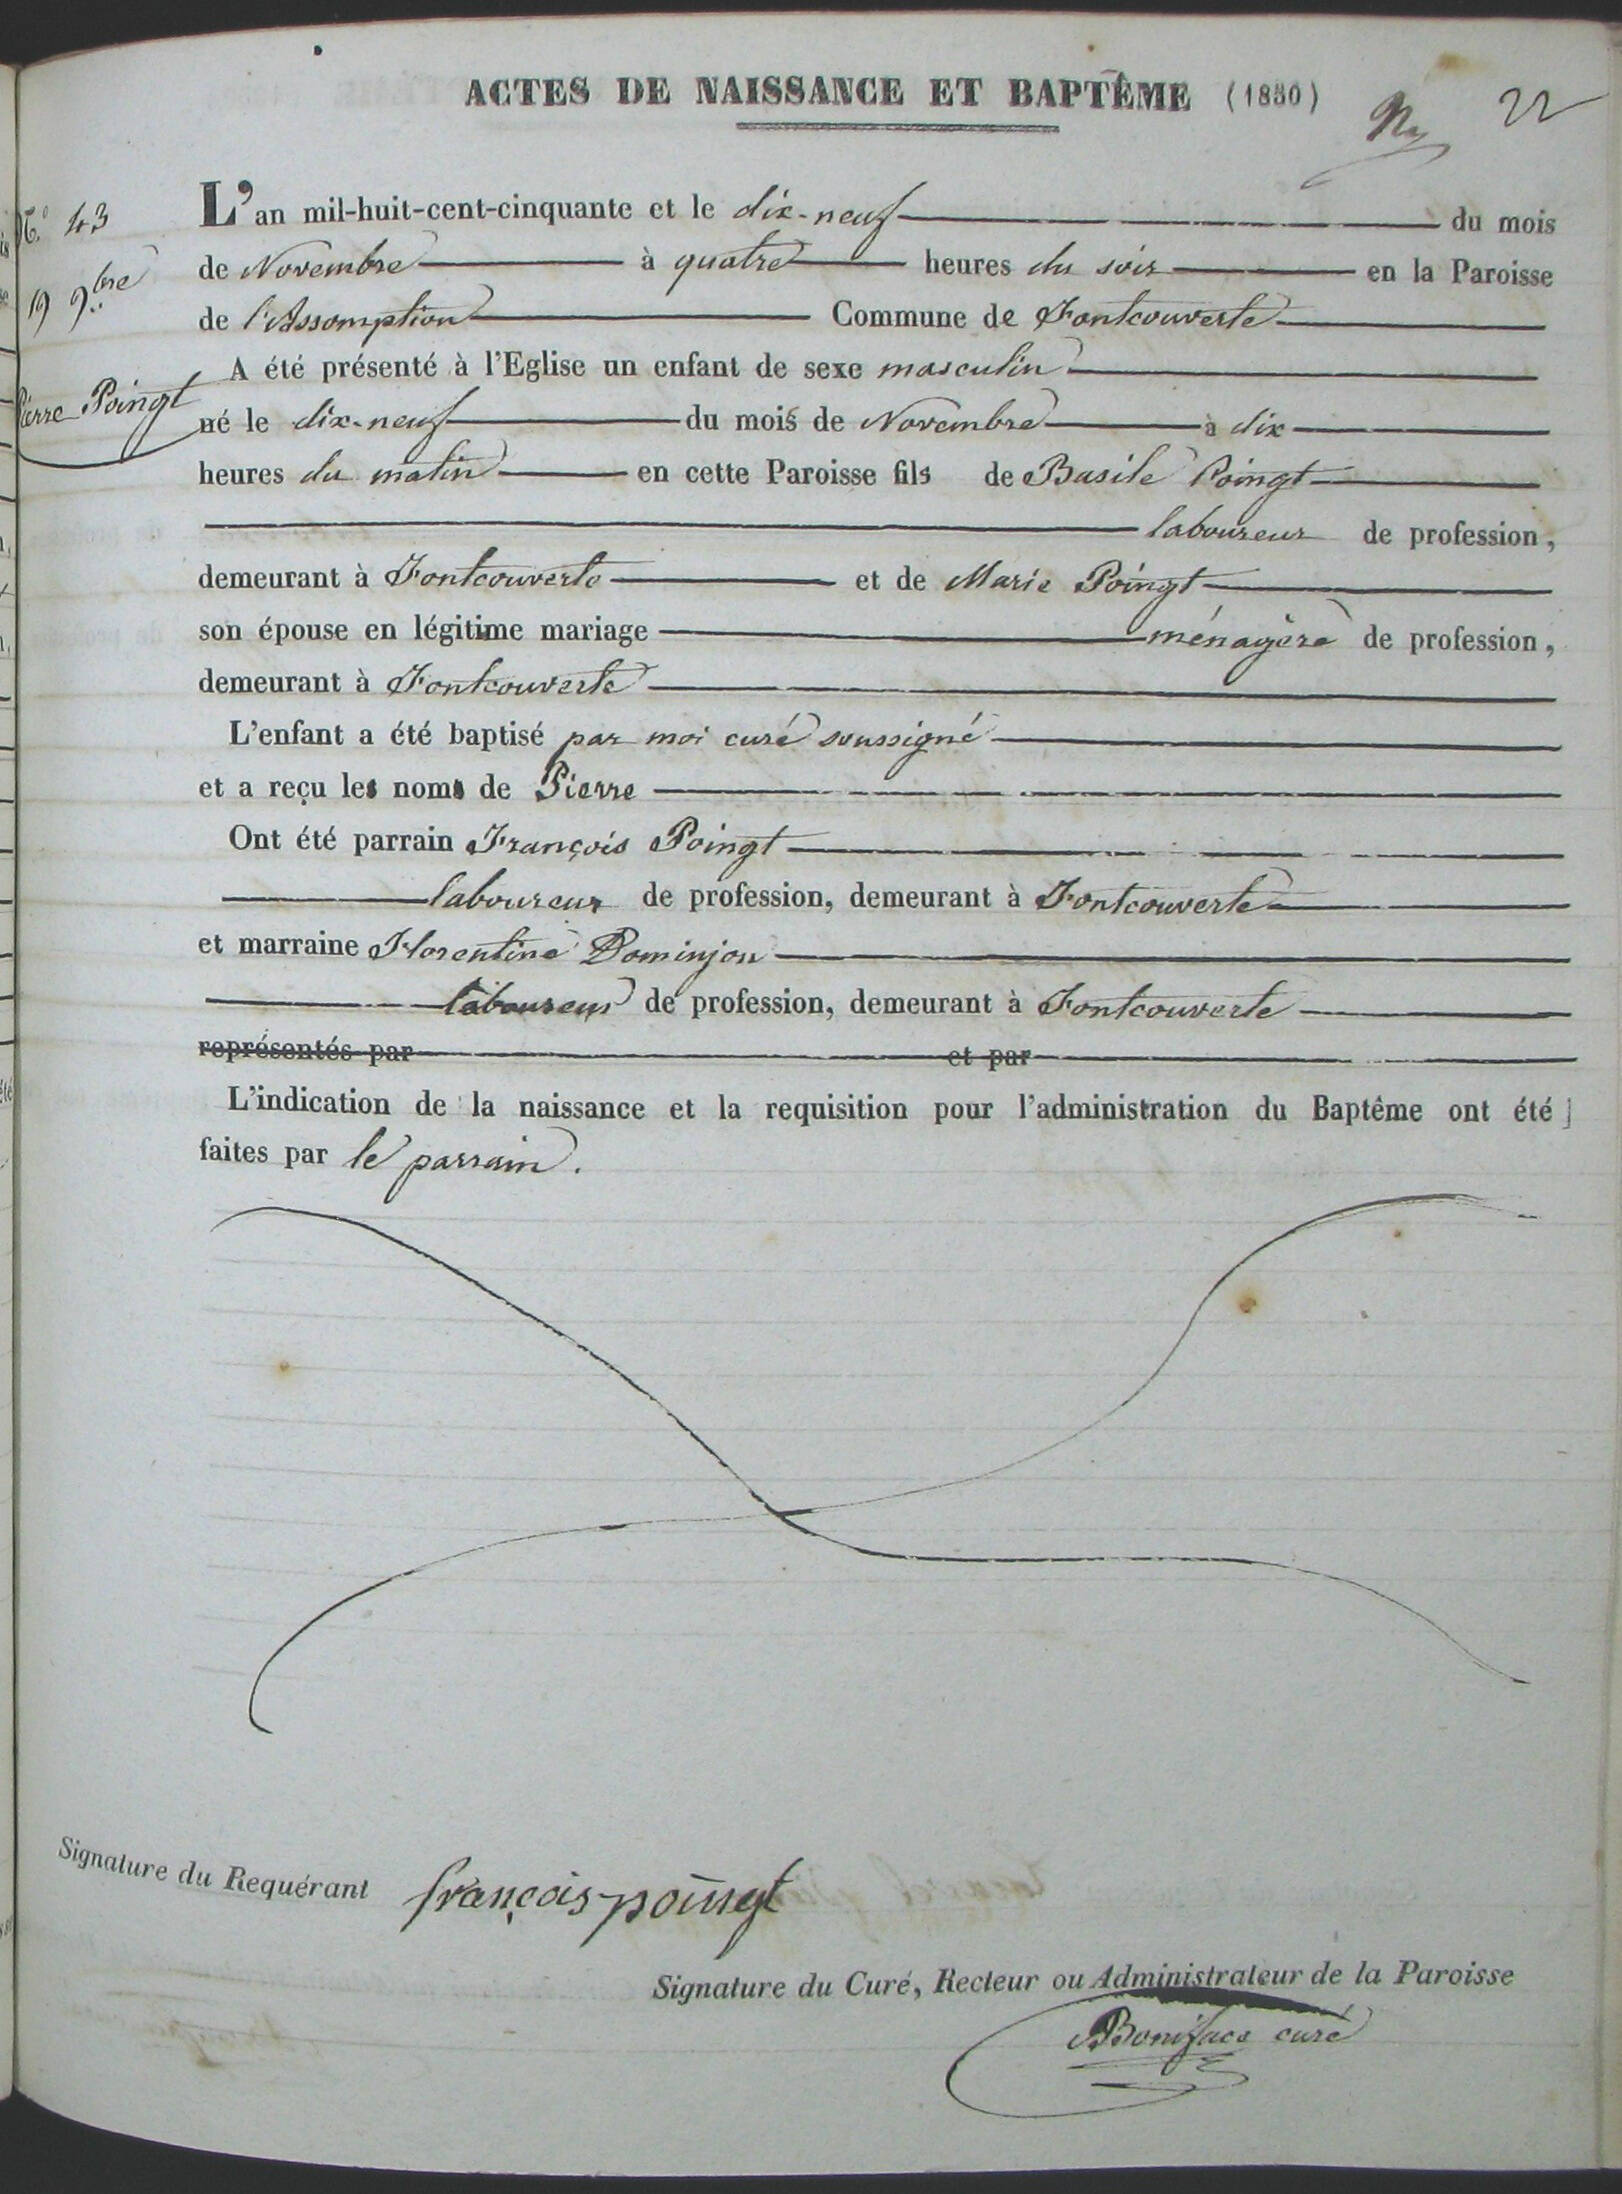 ACTES DE NAISSANCE ET BAPTÊME (1850)
22
N.º 43
19 9.bre
Pierre Poingt
L'an mil-huit-cent-cinquante et le dix-neuf du mois
de Novembre à quatre heures du soir en la Paroisse
de l'Assomption Commune de Fontcouverte
A été présenté à l'Eglise un enfant de sexe masculin
né le dix-neuf du mois de Novembre à dix
heures du matin en cette Paroisse fils de Basile Poingt
laboureur de profession,
demeurant à Fontcouverte et de Marie Poingt
son épouse en légitime mariage ménagère de profession,
demeurant à Fontcouverte
L'enfant a été baptisé par moi curé soussigné
et a reçu les noms de Pierre
Ont été parrain François Poingt
laboureur de profession, demeurant à Fontcouverte
et marraine Florentine Dominjon
laboureur de profession, demeurant à Fontcouverte
représentés par et par
L'indication de la naissance et la requisition pour l'administration du Baptême ont été
faites par le parrain.
Signature du Requérant françois poingt
Signature du Curé, Recteur ou Administrateur de la Paroisse
Boniface curé